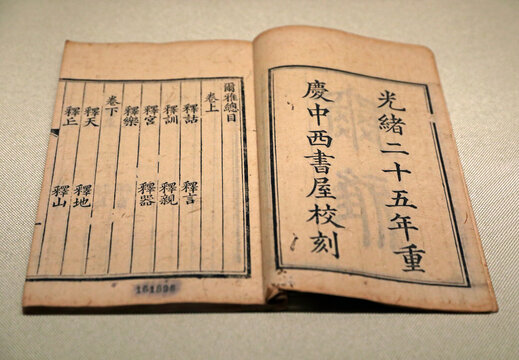 光緒二十五年重
慶中西書屋校刻
爾雅總目
卷上
釋詁 釋言
釋訓 釋親
釋宮 釋器
釋樂
卷下
釋天 釋地
釋丘 釋山